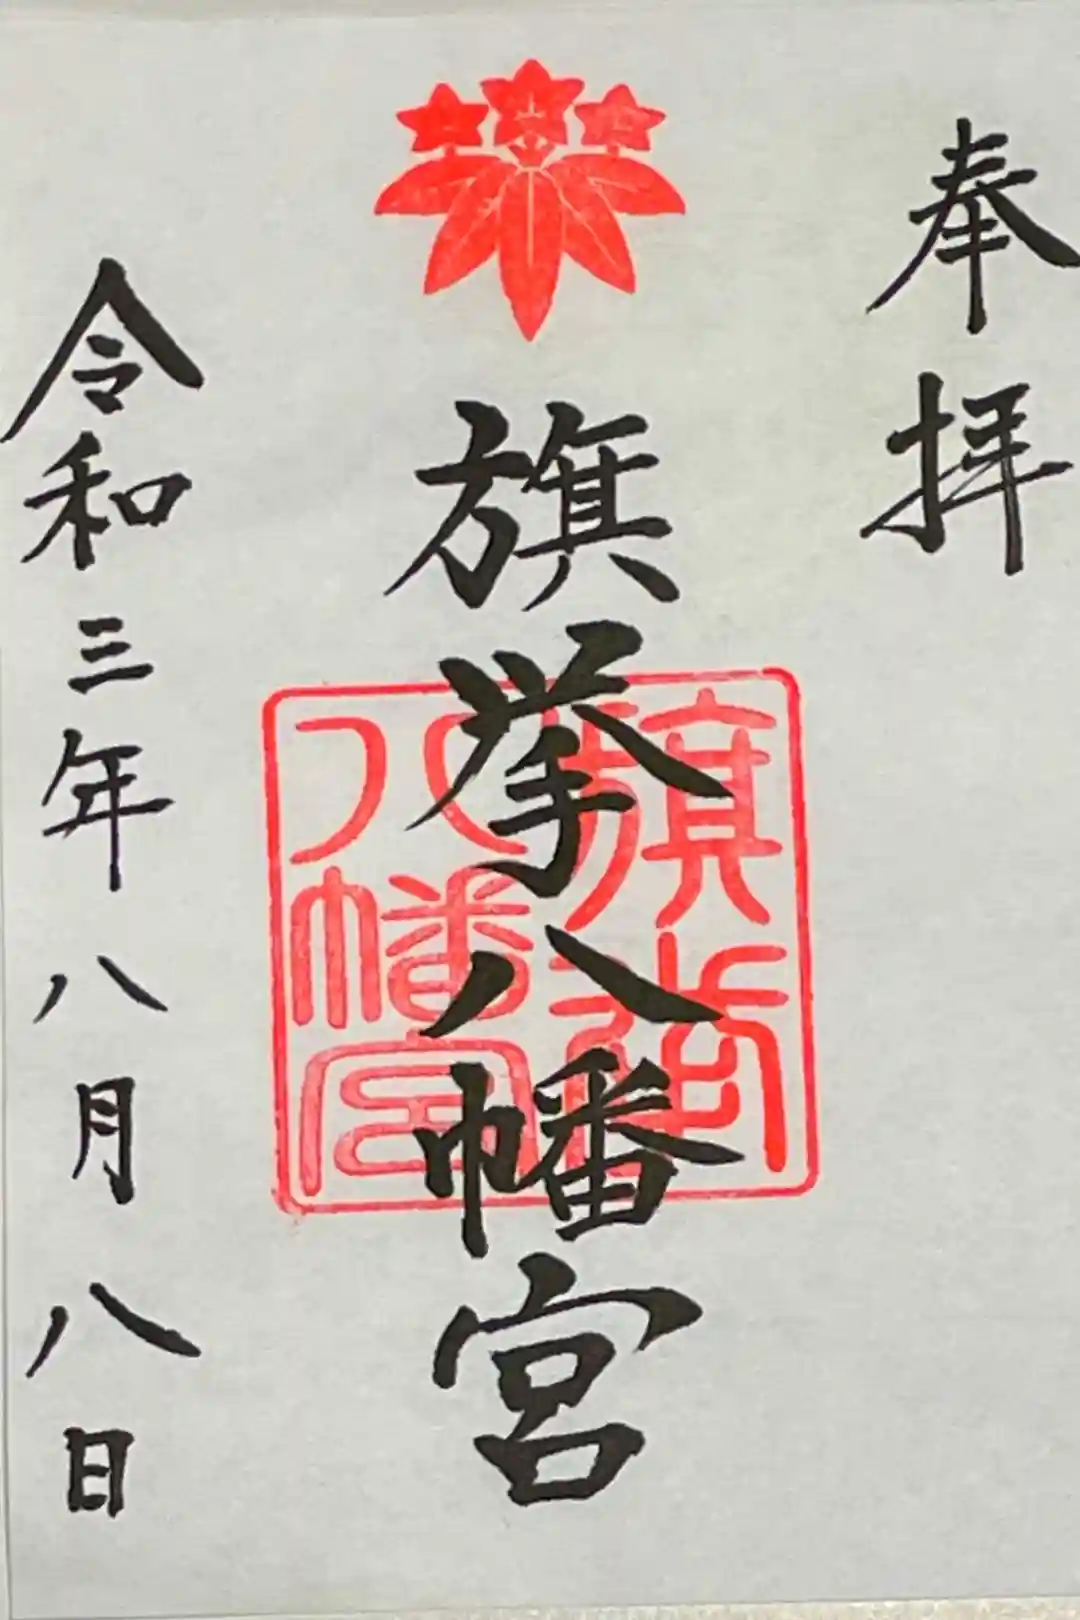 奉拝
旗挙八幡宮
旗挙
八幡宮
令和三年八月八日